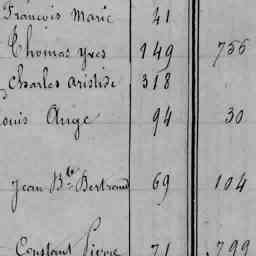 François Marie 41
Thomas Yves 149 755
Charles Aristide 318
ouis Ange 94 30
Jean Bte Bertrand 69 104
Constant Pierre 71 799